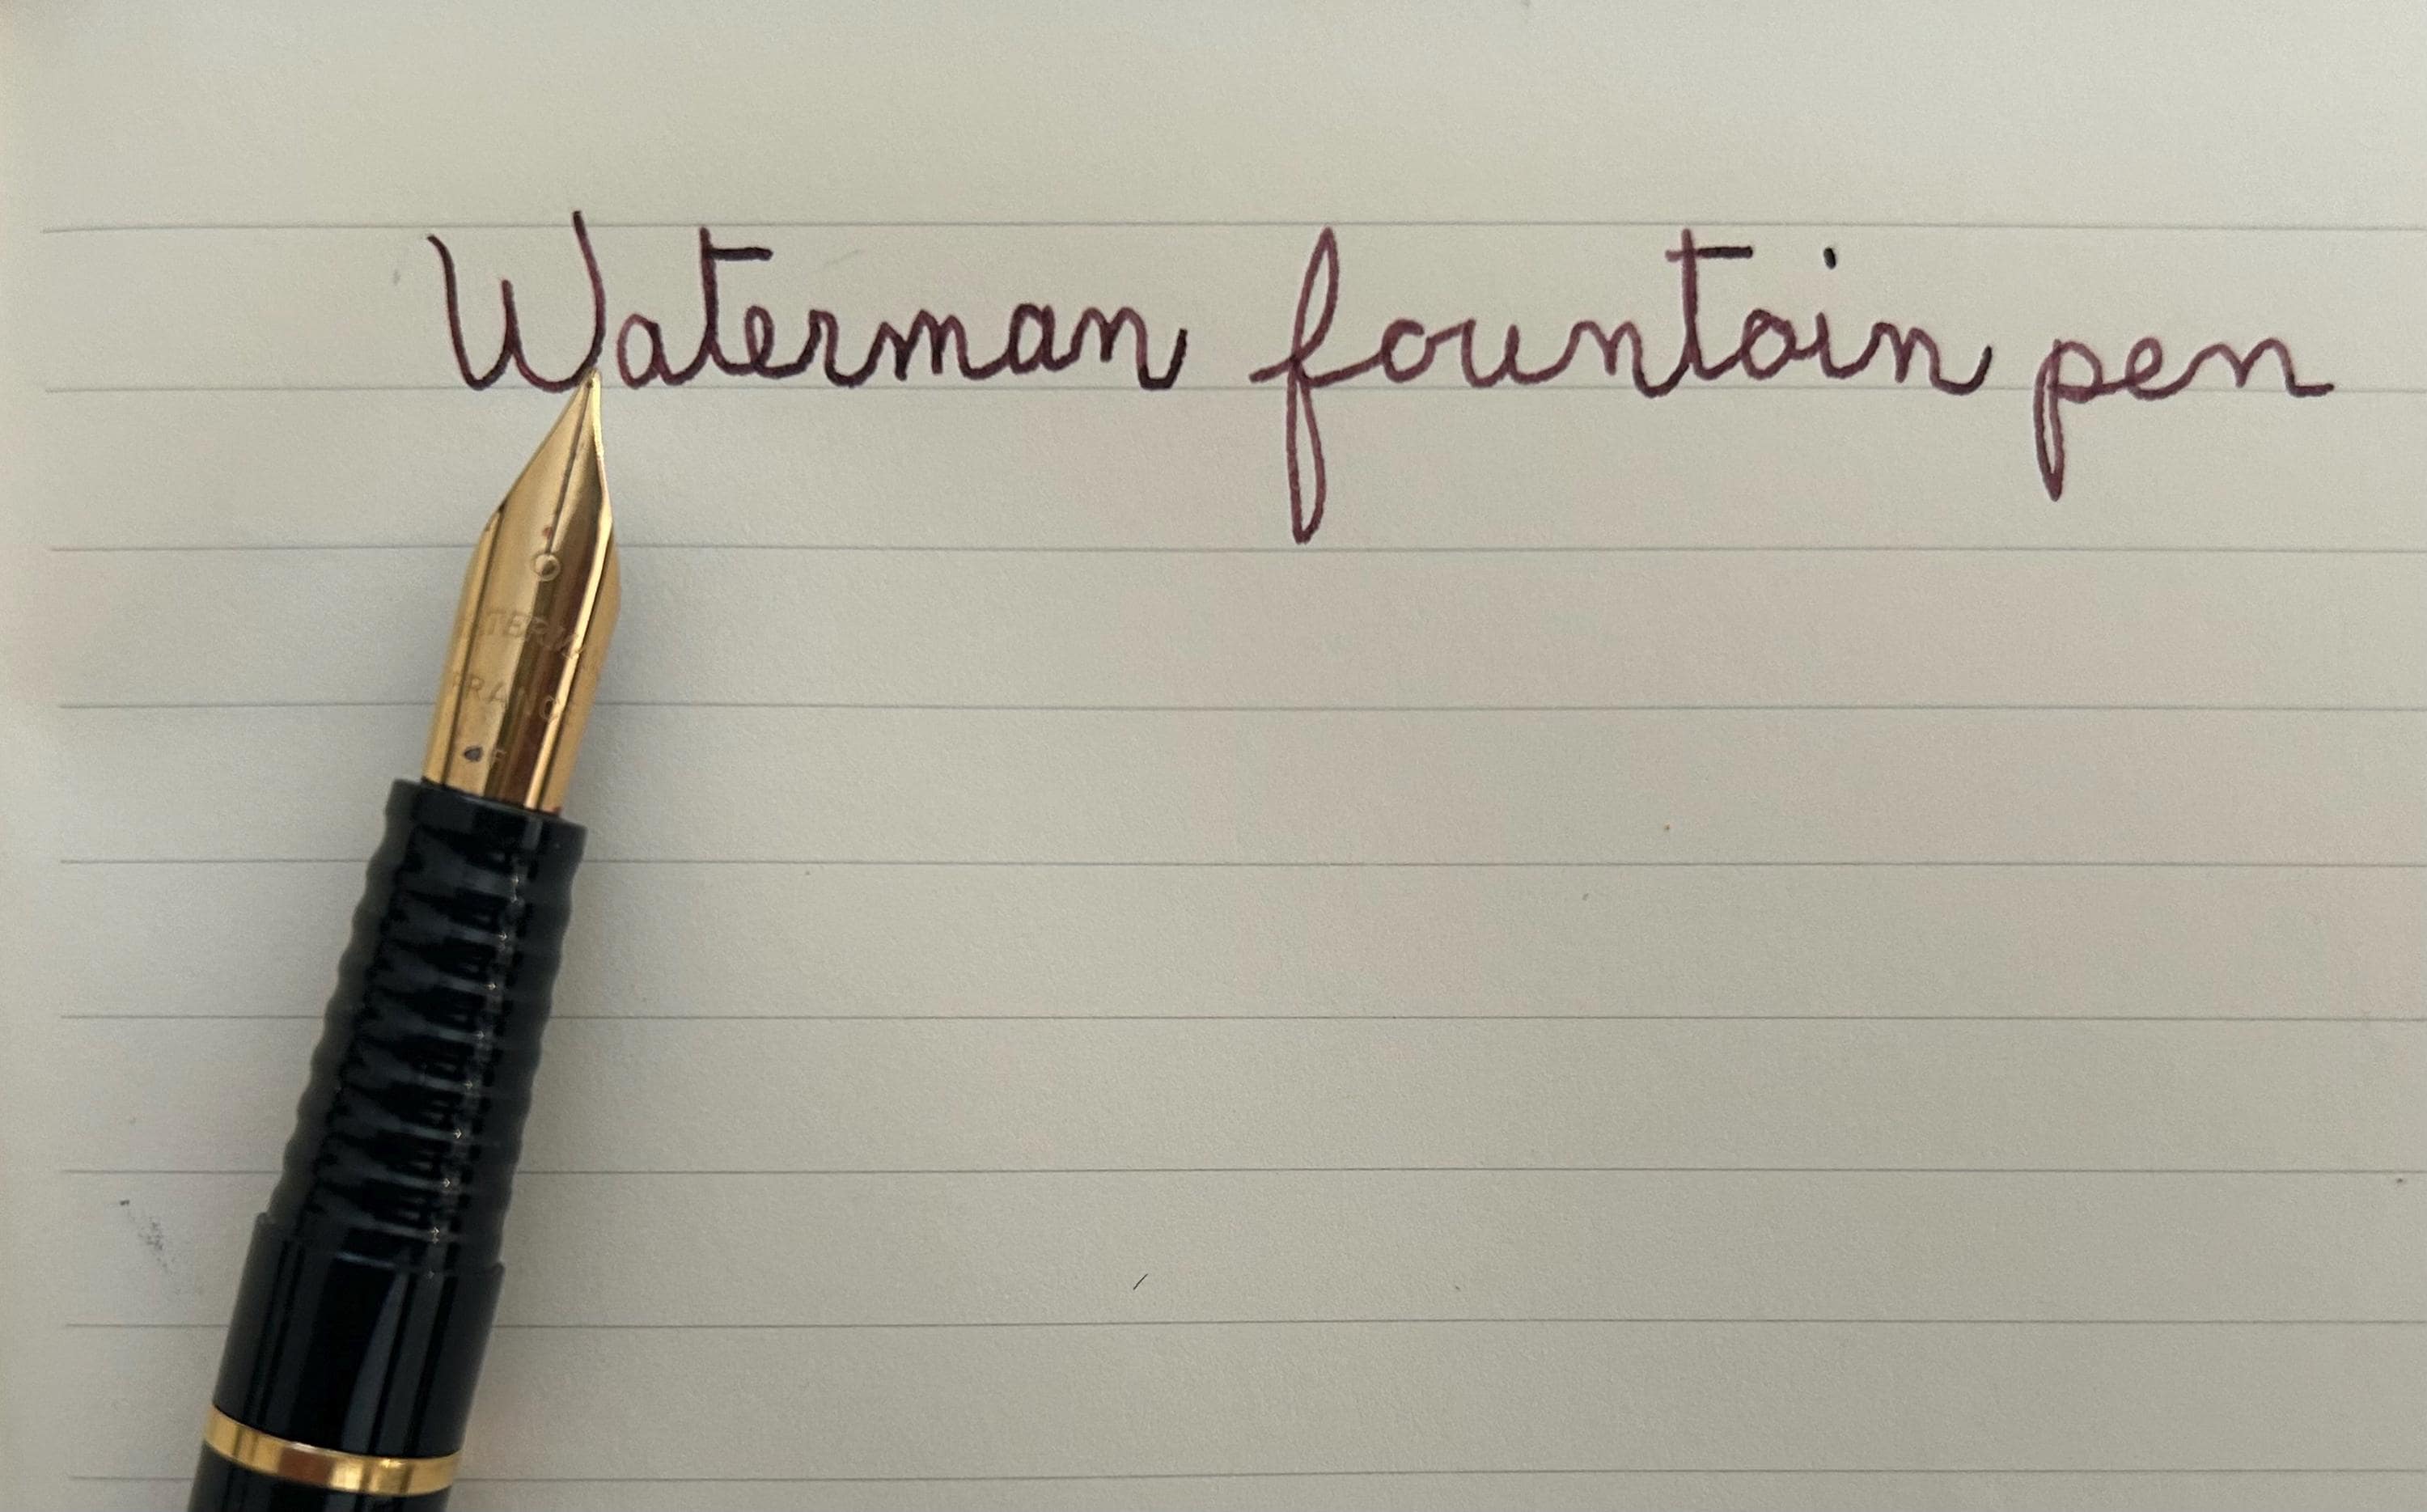 Waterman fountain pen
WATERMA
FRANC
F